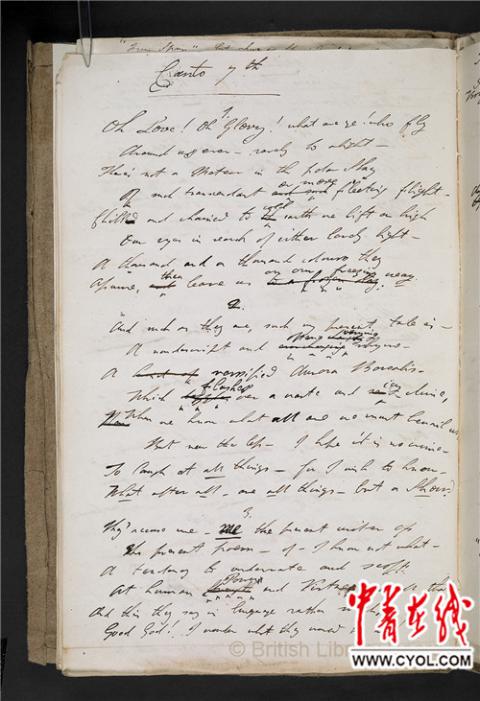 Canto 7th
1.
Oh Love! Oh Glory! what are ye! who fly
Around us ever - rarely to alight -
There's not a Meteor in the Polar Sky
Of such transcendant and more fleeting flight -
Chill and chained to cold earth we lift on high
Our eyes in search of either lovely light -
A thousand and a thousand colours they
Assume, then leave us on our freezing way.
2.
And such as they are, such my present tale is -
A nondescript and varying rhyme -
A versified Aurora Borealis -
Which flashes over a waste and icy clime,
When we know what all are we must bewail us,
But ne'er the less - I hope it is no crime -
To laugh at all things - for I wish to know -
What after all - are all things - but a Show?
3.
They accuse me - me the present writer of
The present poem - of - I know not what -
A tendency to underrate and scoff
At human power and Virtue
And this they say in language rather
Good God! I wonder what they would
© British Lib
中青在线
WWW.CYOL.COM